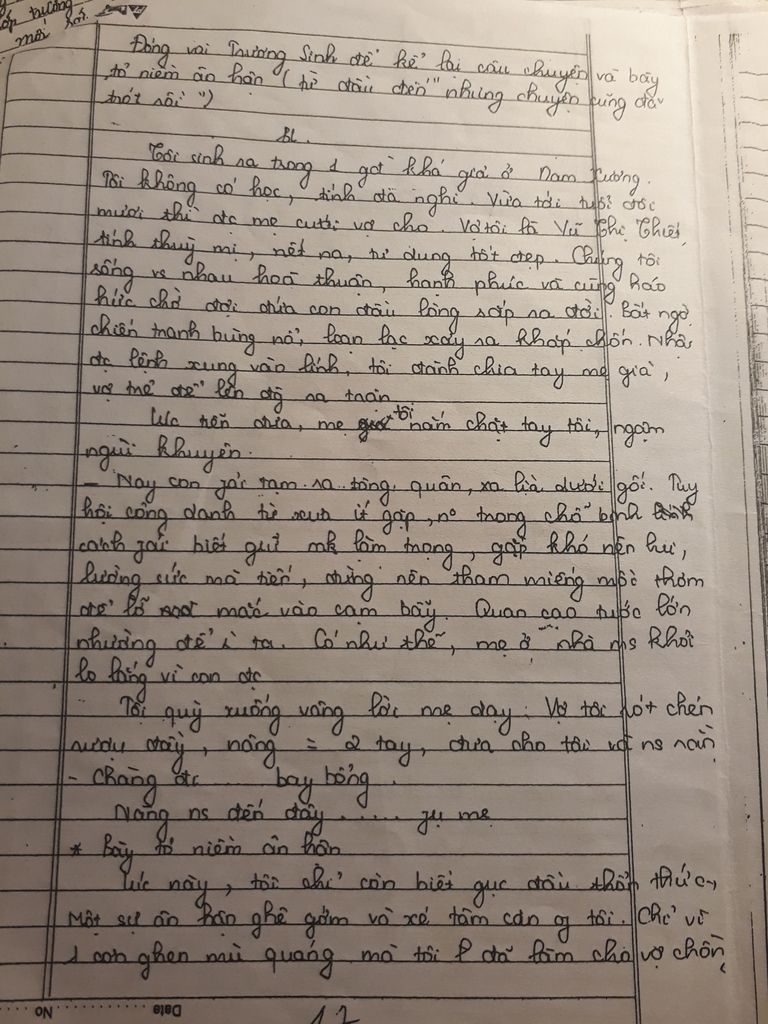 ớp trưởng
mới
Đóng vai Trương Sinh để kể lại câu chuyện và bày
tỏ niềm ân hận (từ đầu đến "nhưng chuyện cũng đã
trót rồi")
BL.
Tôi sinh ra trong 1 gđ khá giả ở Nam Xương.
Tôi không có học, tính đa nghi. Vừa tới tuổi đôi
mươi thì đc mẹ cưới vợ cho. Vợ tôi là Vũ Thị Thiết,
tính thuỳ mị, nết na, tư dung tốt đẹp. Chúng tôi
sống vs nhau hoà thuận, hạnh phúc và cùng háo
hức chờ đợi đứa con đầu lòng sắp ra đời. Bất ngờ
chiến tranh bùng nổ, loạn lạc xảy ra khắp chốn. Nhận
đc lệnh xung vào lính, tôi đành chia tay mẹ già,
vợ trẻ để lên đg ra trận
Lúc tiễn đưa, mẹ tôi nắm chặt tay tôi, ngậm
ngùi khuyên.
- Nay con phải tạm ra tòng quân, xa lìa dưới gối. Tuy
hội công danh từ xưa ít gặp, nº trong chỗ binh
cánh phải biết giữ mk làm trọng, gặp khó nên lui,
lường sức mà tiến, đừng nên tham miếng mồi thơm
để lỡ mắc vào cạm bẫy. Quan cao tước lớn
nhường để ta. Có như thế, mẹ ở nhà ms khỏi
lo lắng vì con đc
Tôi quỳ xuống vâng lời mẹ dạy. Vợ tôi rót chén
rượu đầy, nâng = 2 tay, đưa cho tôi và ns rằng
- Chàng đc bay bổng.
Nàng ns đến đây ..... mẹ
* Bày tỏ niềm ân hận
Lúc này, tôi chỉ còn biết gục đầu thổn thức,
Một sự ân hận ghê gớm vò xé tâm can of tôi. Chỉ vì
1 cơn ghen mù quáng mà tôi đã làm cho vợ chồng
Date No
17